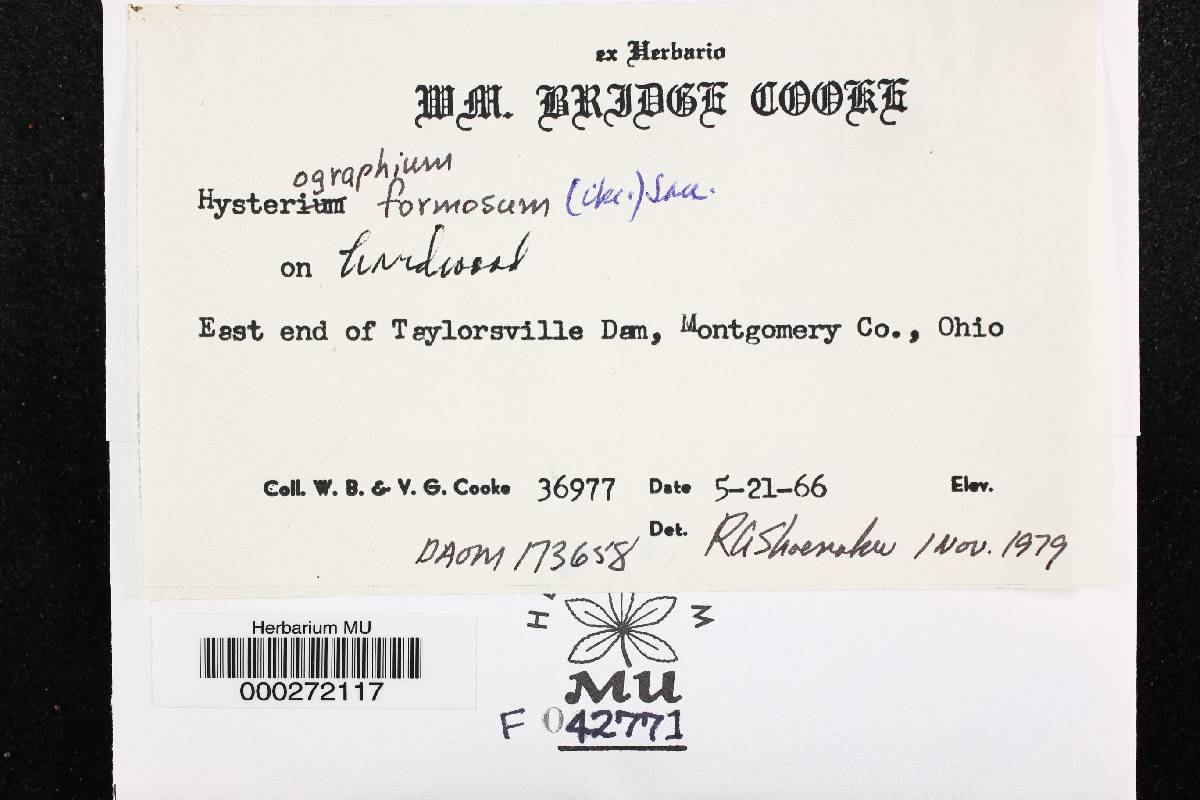 ex Herbario
WM. BRIDGE COOKE
ographium
Hysterium formosum (Cke.) Sacc.
on hardwood
East end of Taylorsville Dam, Montgomery Co., Ohio
Coll. W. B. & V. G. Cooke 36977 Date 5-21-66 Elev.
Det. RAShoemaker 1 Nov. 1979
DAOM 173658
Herbarium MU
000272117
MU
F 042771